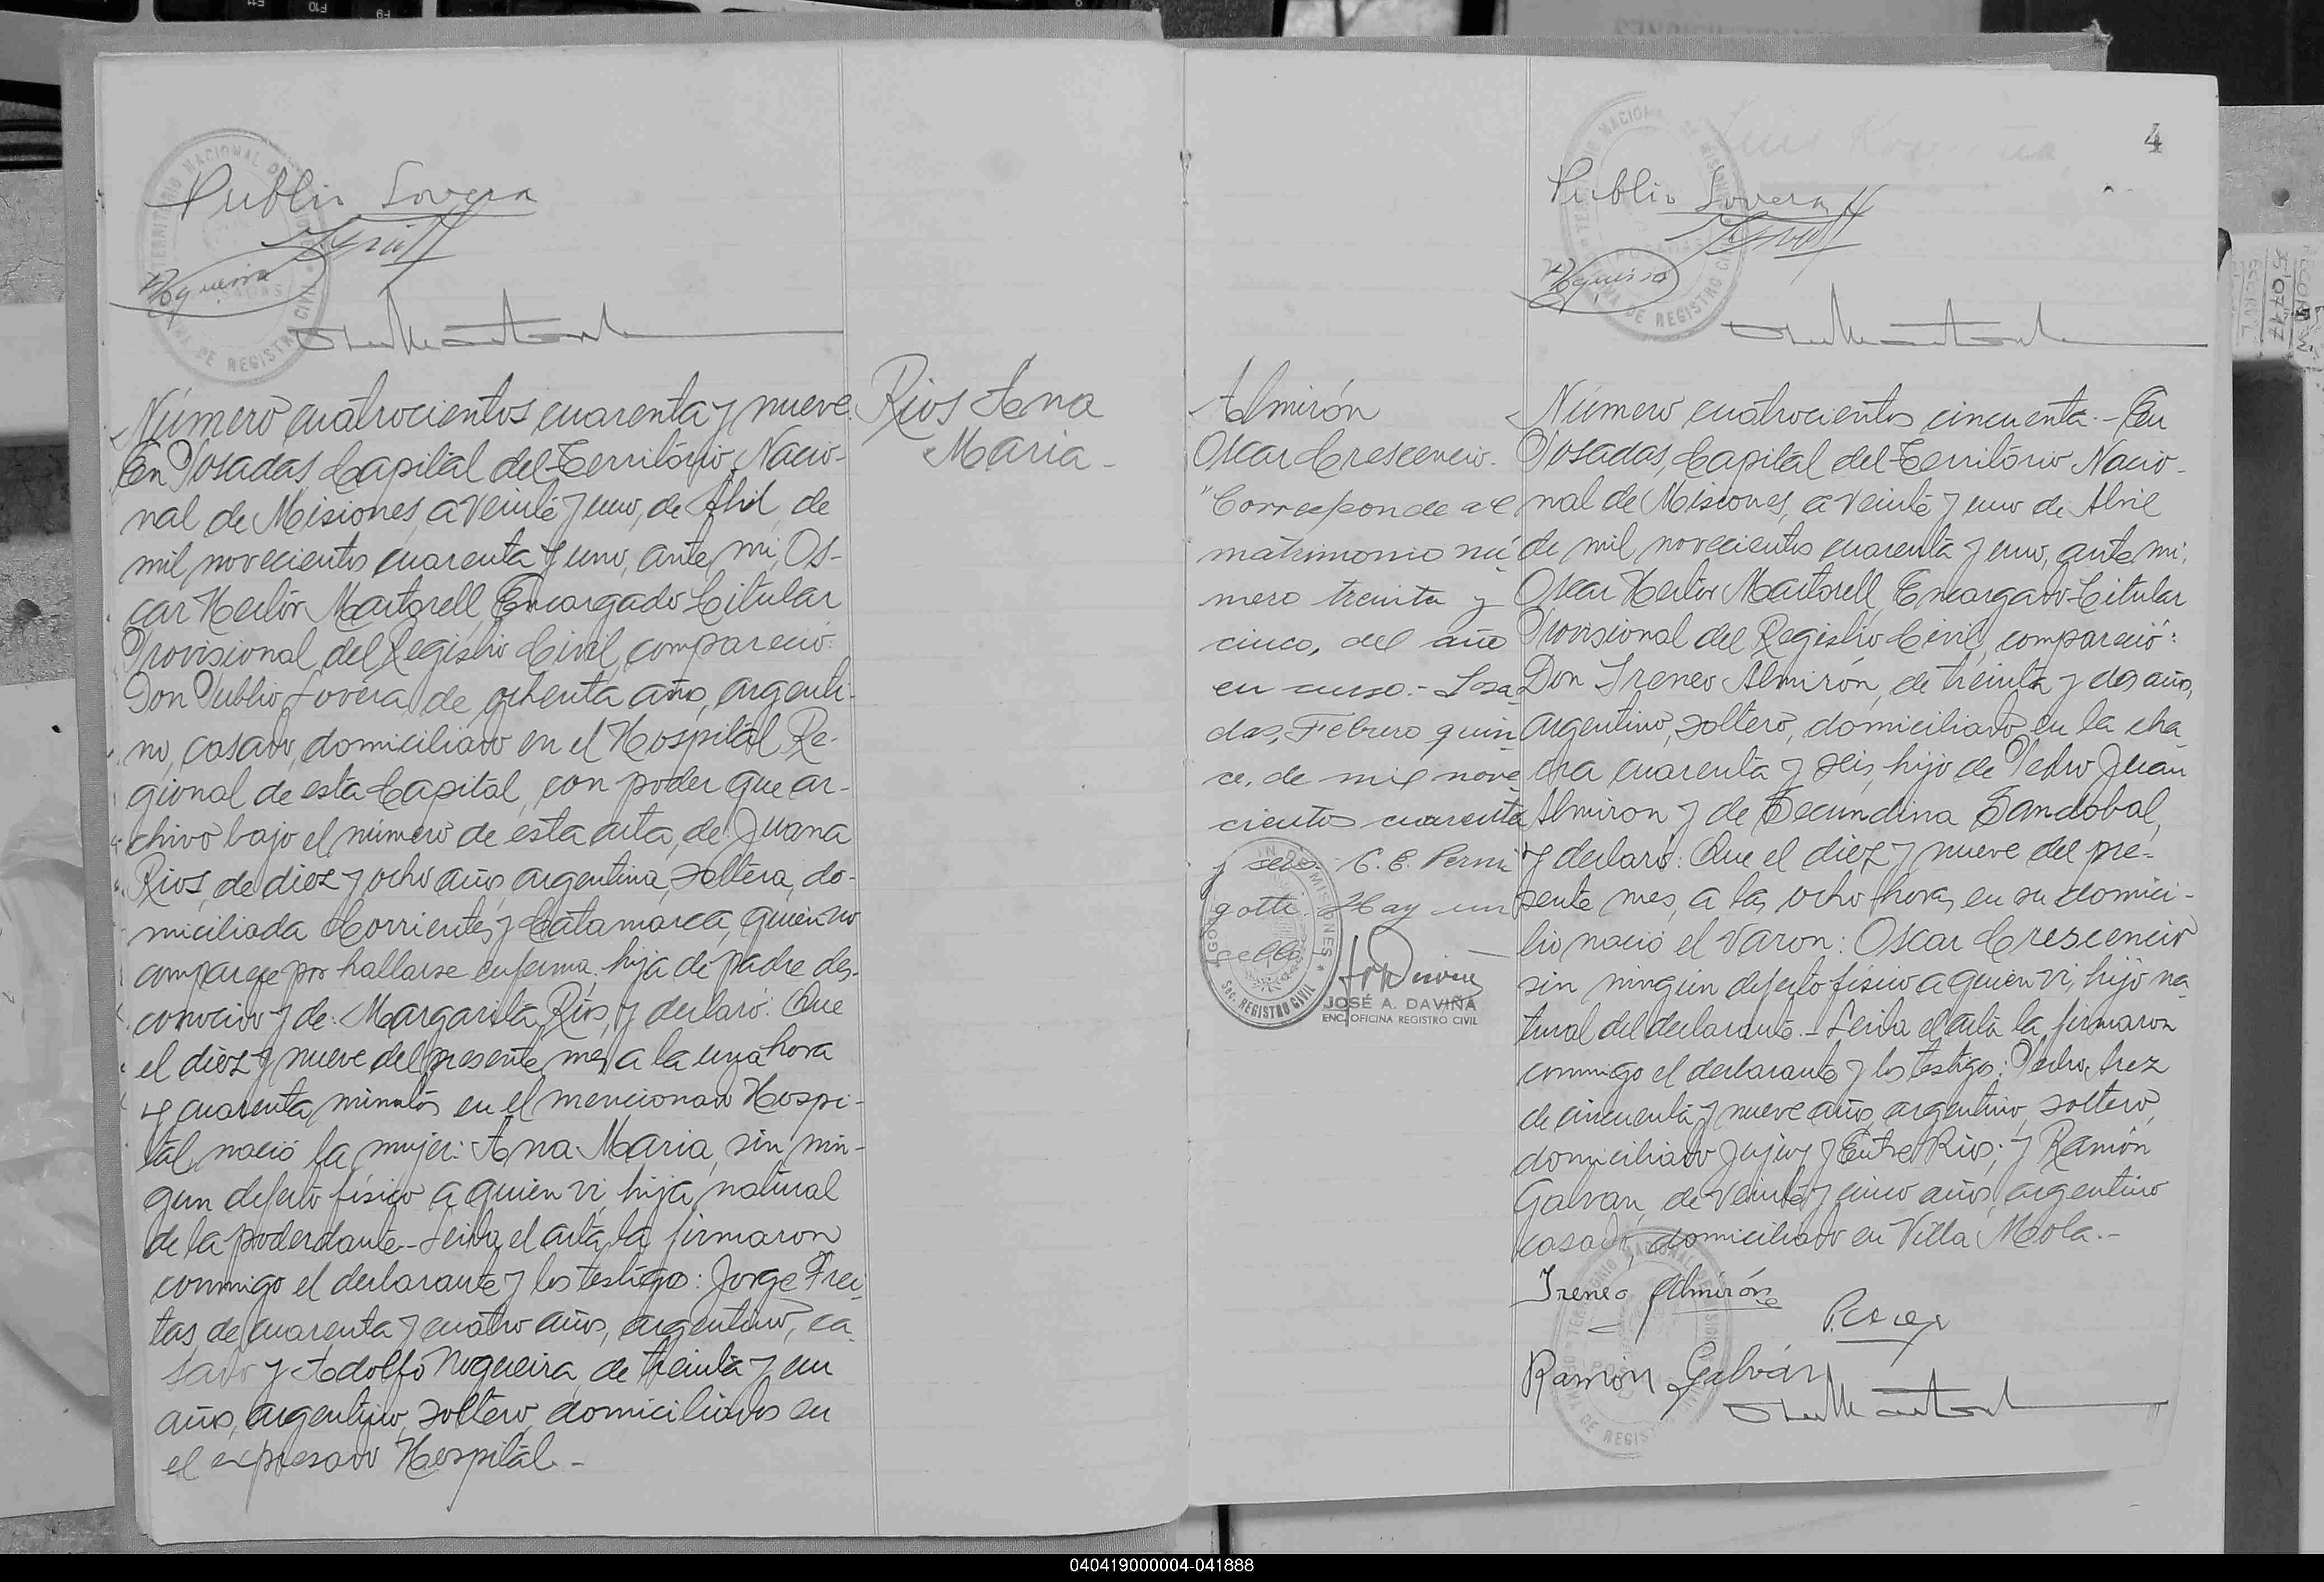 Publio Lovera
Nogueira
Número cuatrocientos cuarenta y nueve.
En Posadas, Capital del Territorio Nacio-
nal de Misiones, a veinte y uno, de Abril, de
mil novecientos cuarenta y uno, ante mi, Os-
car Hector Martorell, Encargado Titular
Provisional del Registro Civil, compareció:
Don Publio Lovera, de ochenta años, argenti-
no, casado, domiciliado en el Hospital Re-
gional de esta Capital, con poder que ar-
chivo bajo el número de esta acta, de: Juana
Rios, de diez y ocho años, argentina, soltera, do-
miciliada Corrientes y Catamarca, quien no
comparece por hallarse enferma, hija de padre des-
conocido y de: Margarita Rios, y declaró: Que
el diez y nueve del presente mes, a la una hora
y cuarenta minutos en el mencionado Hospi-
tal, nació la mujer: Ana Maria, sin nin-
gun defecto físico a quien vi, hija natural
de la poderdante.- Leida el acta, la firmaron
conmigo el declarante y los testigos: Jorge Frei-
tas, de cuarenta y cuatro años, argentino, ca-
sado y Adolfo Nogueira, de treinta y un
años, argentino, soltero, domiciliados en
el expresado Hospital.-
Rios Ana
Maria-
4
Publio Lovera
Nogueira
Almirón
Oscar Crescencio.
"Corresponde al
matrimonio nú-
mero treinta y
cinco, del año
en curso.- Posa-
das, Febrero quin-
ce, de mil nove-
cientos cuarenta
y seis. C. E. Perni
gotti. Hay un
sello.
JOSÉ A. DAVIÑA
ENC. OFICINA REGISTRO CIVIL
SEC. REGISTRO CIVIL
Número cuatrocientos cincuenta.- En
Posadas, Capital del Territorio Nacio-
nal de Misiones, a veinte y uno de Abril
de mil novecientos cuarenta y uno, ante mi,
Oscar Hector Martorell, Encargado Titular
Provisional del Registro Civil, compareció:
Don Ireneo Almirón, de treinta y dos años,
argentino, soltero, domiciliado en la cha-
cra cuarenta y seis, hijo de Pedro Juan
Almiron y de Secundina Sandobal,
y declaró: Que el diez y nueve del pre-
sente mes, a las ocho horas, en su domici-
lio nació el varon: Oscar Crescencio
sin ningún defecto físico a quien vi, hijo na-
tural del declarante.- Leida el acta la firmaron
conmigo el declarante y los testigos: Pedro
de cincuenta y nueve años, argentino, soltero,
domiciliado Jujuy y Entre Rios; y Ramón
Galvan, de veinte y cinco años, argentino
casado, domiciliado en Villa Mola.-
Ireneo Almirón
Ramon Galván
040419000004-041888